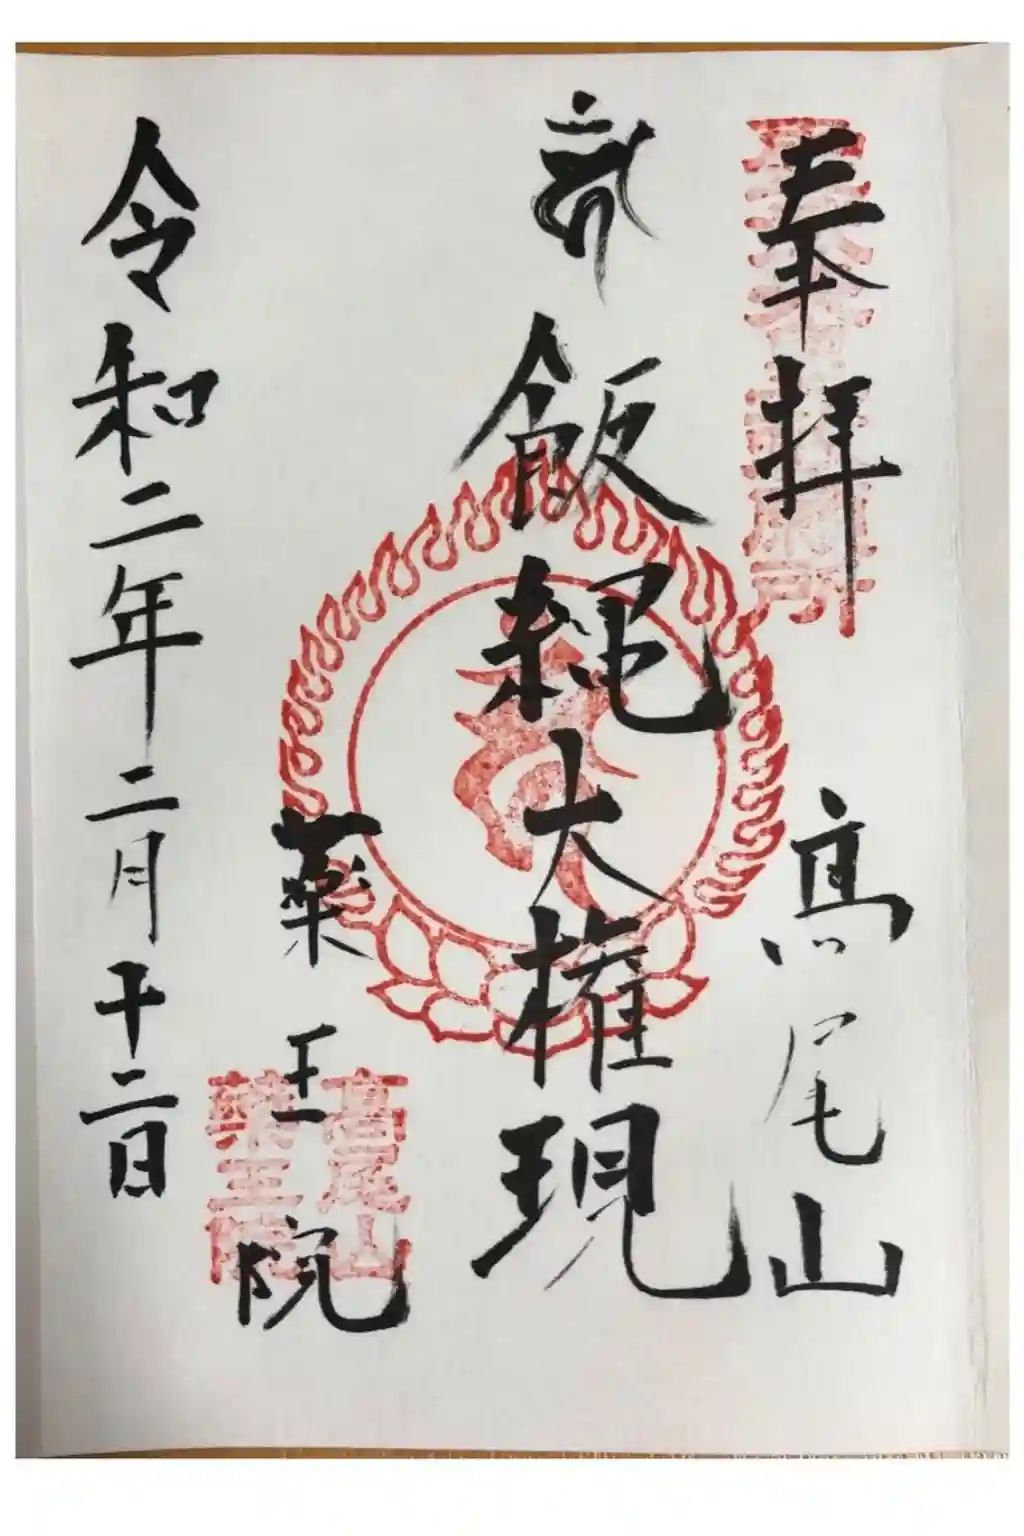 奉拝
高尾山
飯縄大権現
薬王院
高尾山
薬王院
令和二年二月十二日